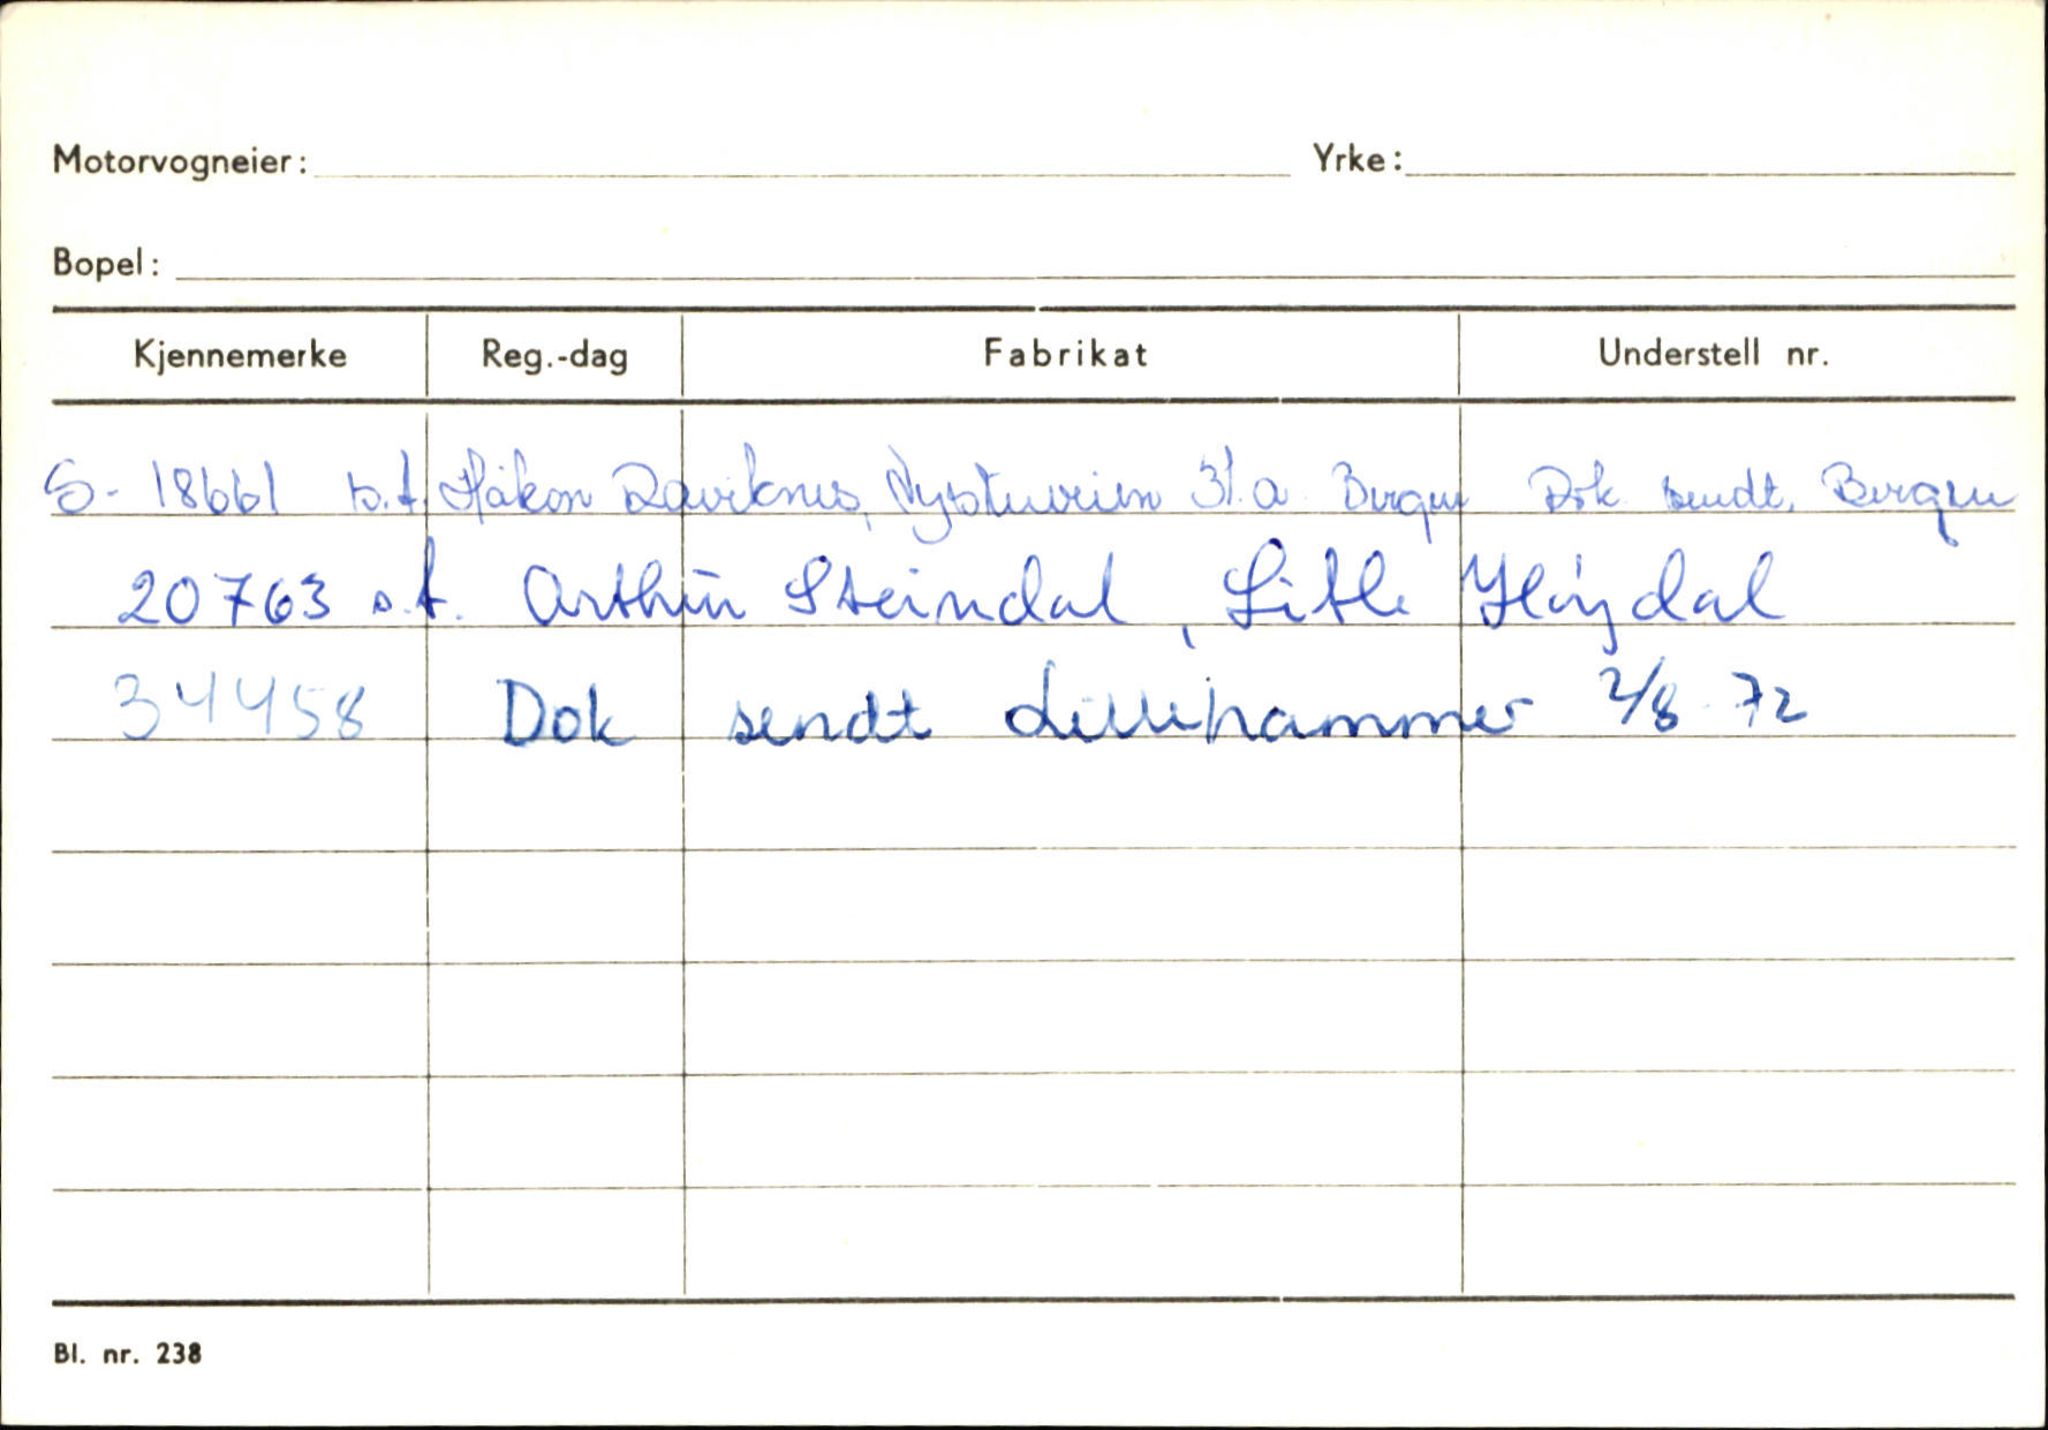 Motorvogneier: Yrke:
Bopel:
Kjennemerke Reg.-dag Fabrikat Understell nr.
S-18661 s.t. Håkon Raviknes, Nystuveien 31.a Bergen Dok sendt. Bergen
20763 s.t. Arthur Steindal, Litle Høydal
34458 Dok sendt Lillehammer 2/8-72
Bl. nr. 238